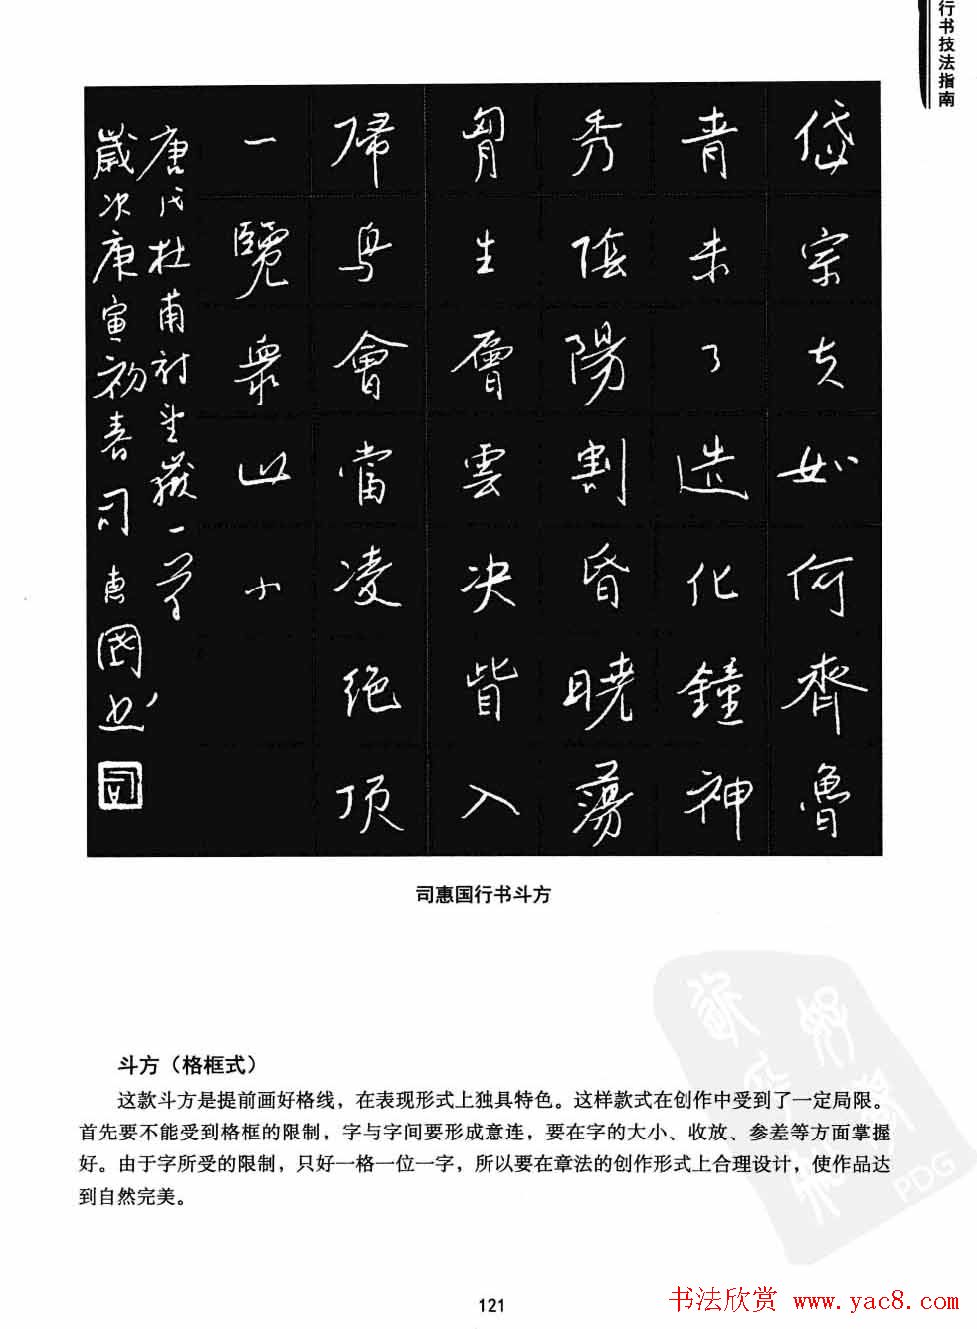 行书技法指南
岱宗夫如何齊魯
青未了造化鐘神
秀陰陽割昏曉蕩
胷生層雲決眥入
歸鳥會當凌絕頂
一覽衆山小
唐代杜甫詩望嶽一首
歲次庚寅初春司惠國書
司惠国行书斗方
斗方（格框式）
这款斗方是提前画好格线，在表现形式上独具特色。这样款式在创作中受到了一定局限。
首先要不能受到格框的限制，字与字间要形成意连，要在字的大小、收放、参差等方面掌握
好。由于字所受的限制，只好一格一位一字，所以要在章法的创作形式上合理设计，使作品达
到自然完美。
PDG
121
书法欣赏 www.yac8.com